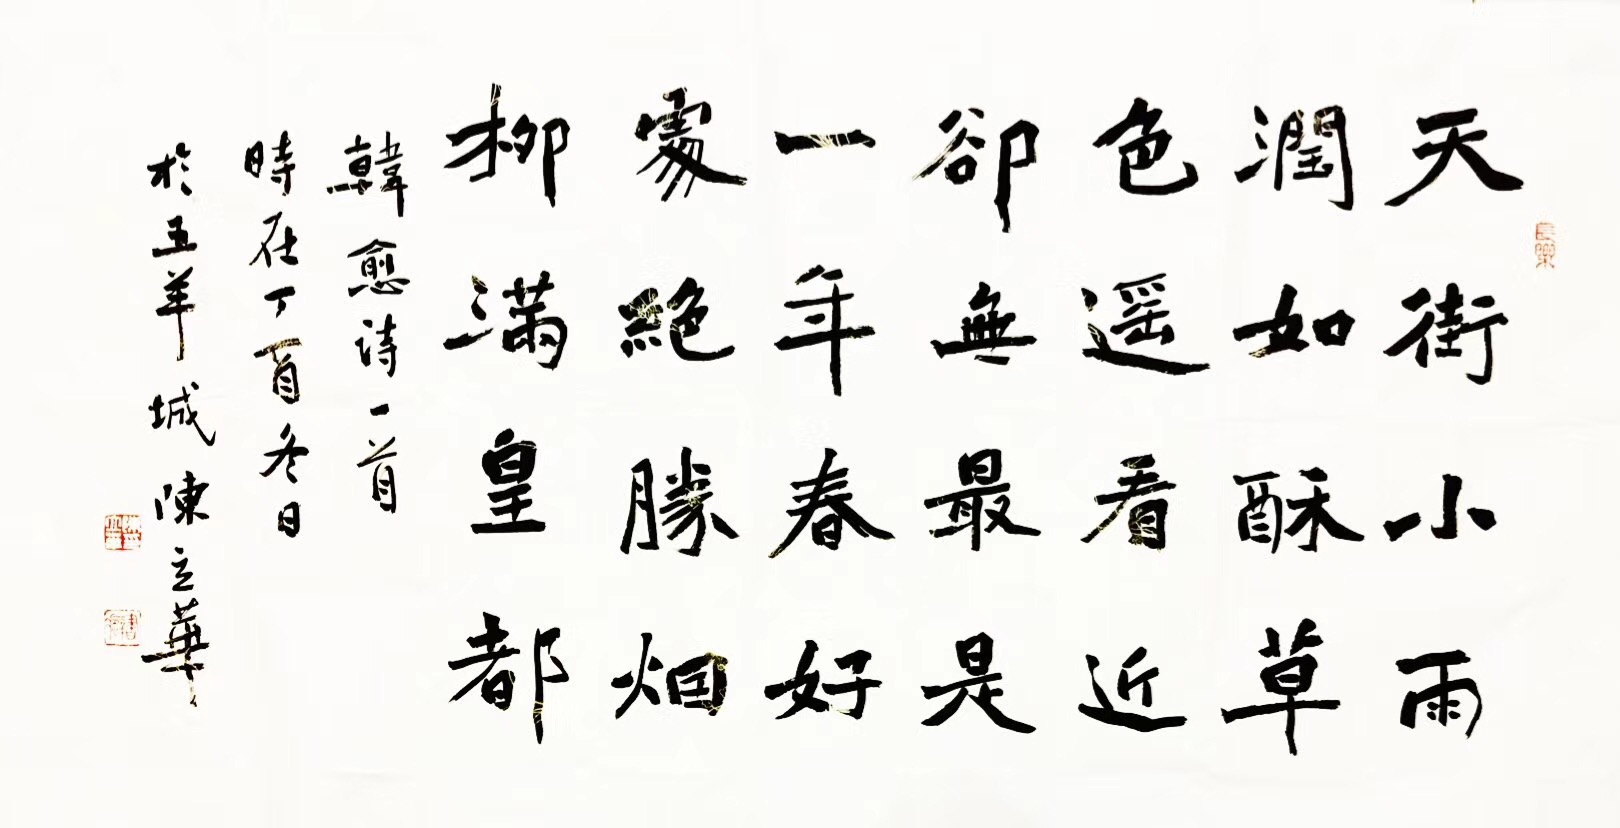 天街小雨
潤如酥草
色遥看近
卻無最是
一年春好
處絶勝烟
柳滿皇都
韓愈诗一首
時在丁酉冬日
於五羊城陳立華